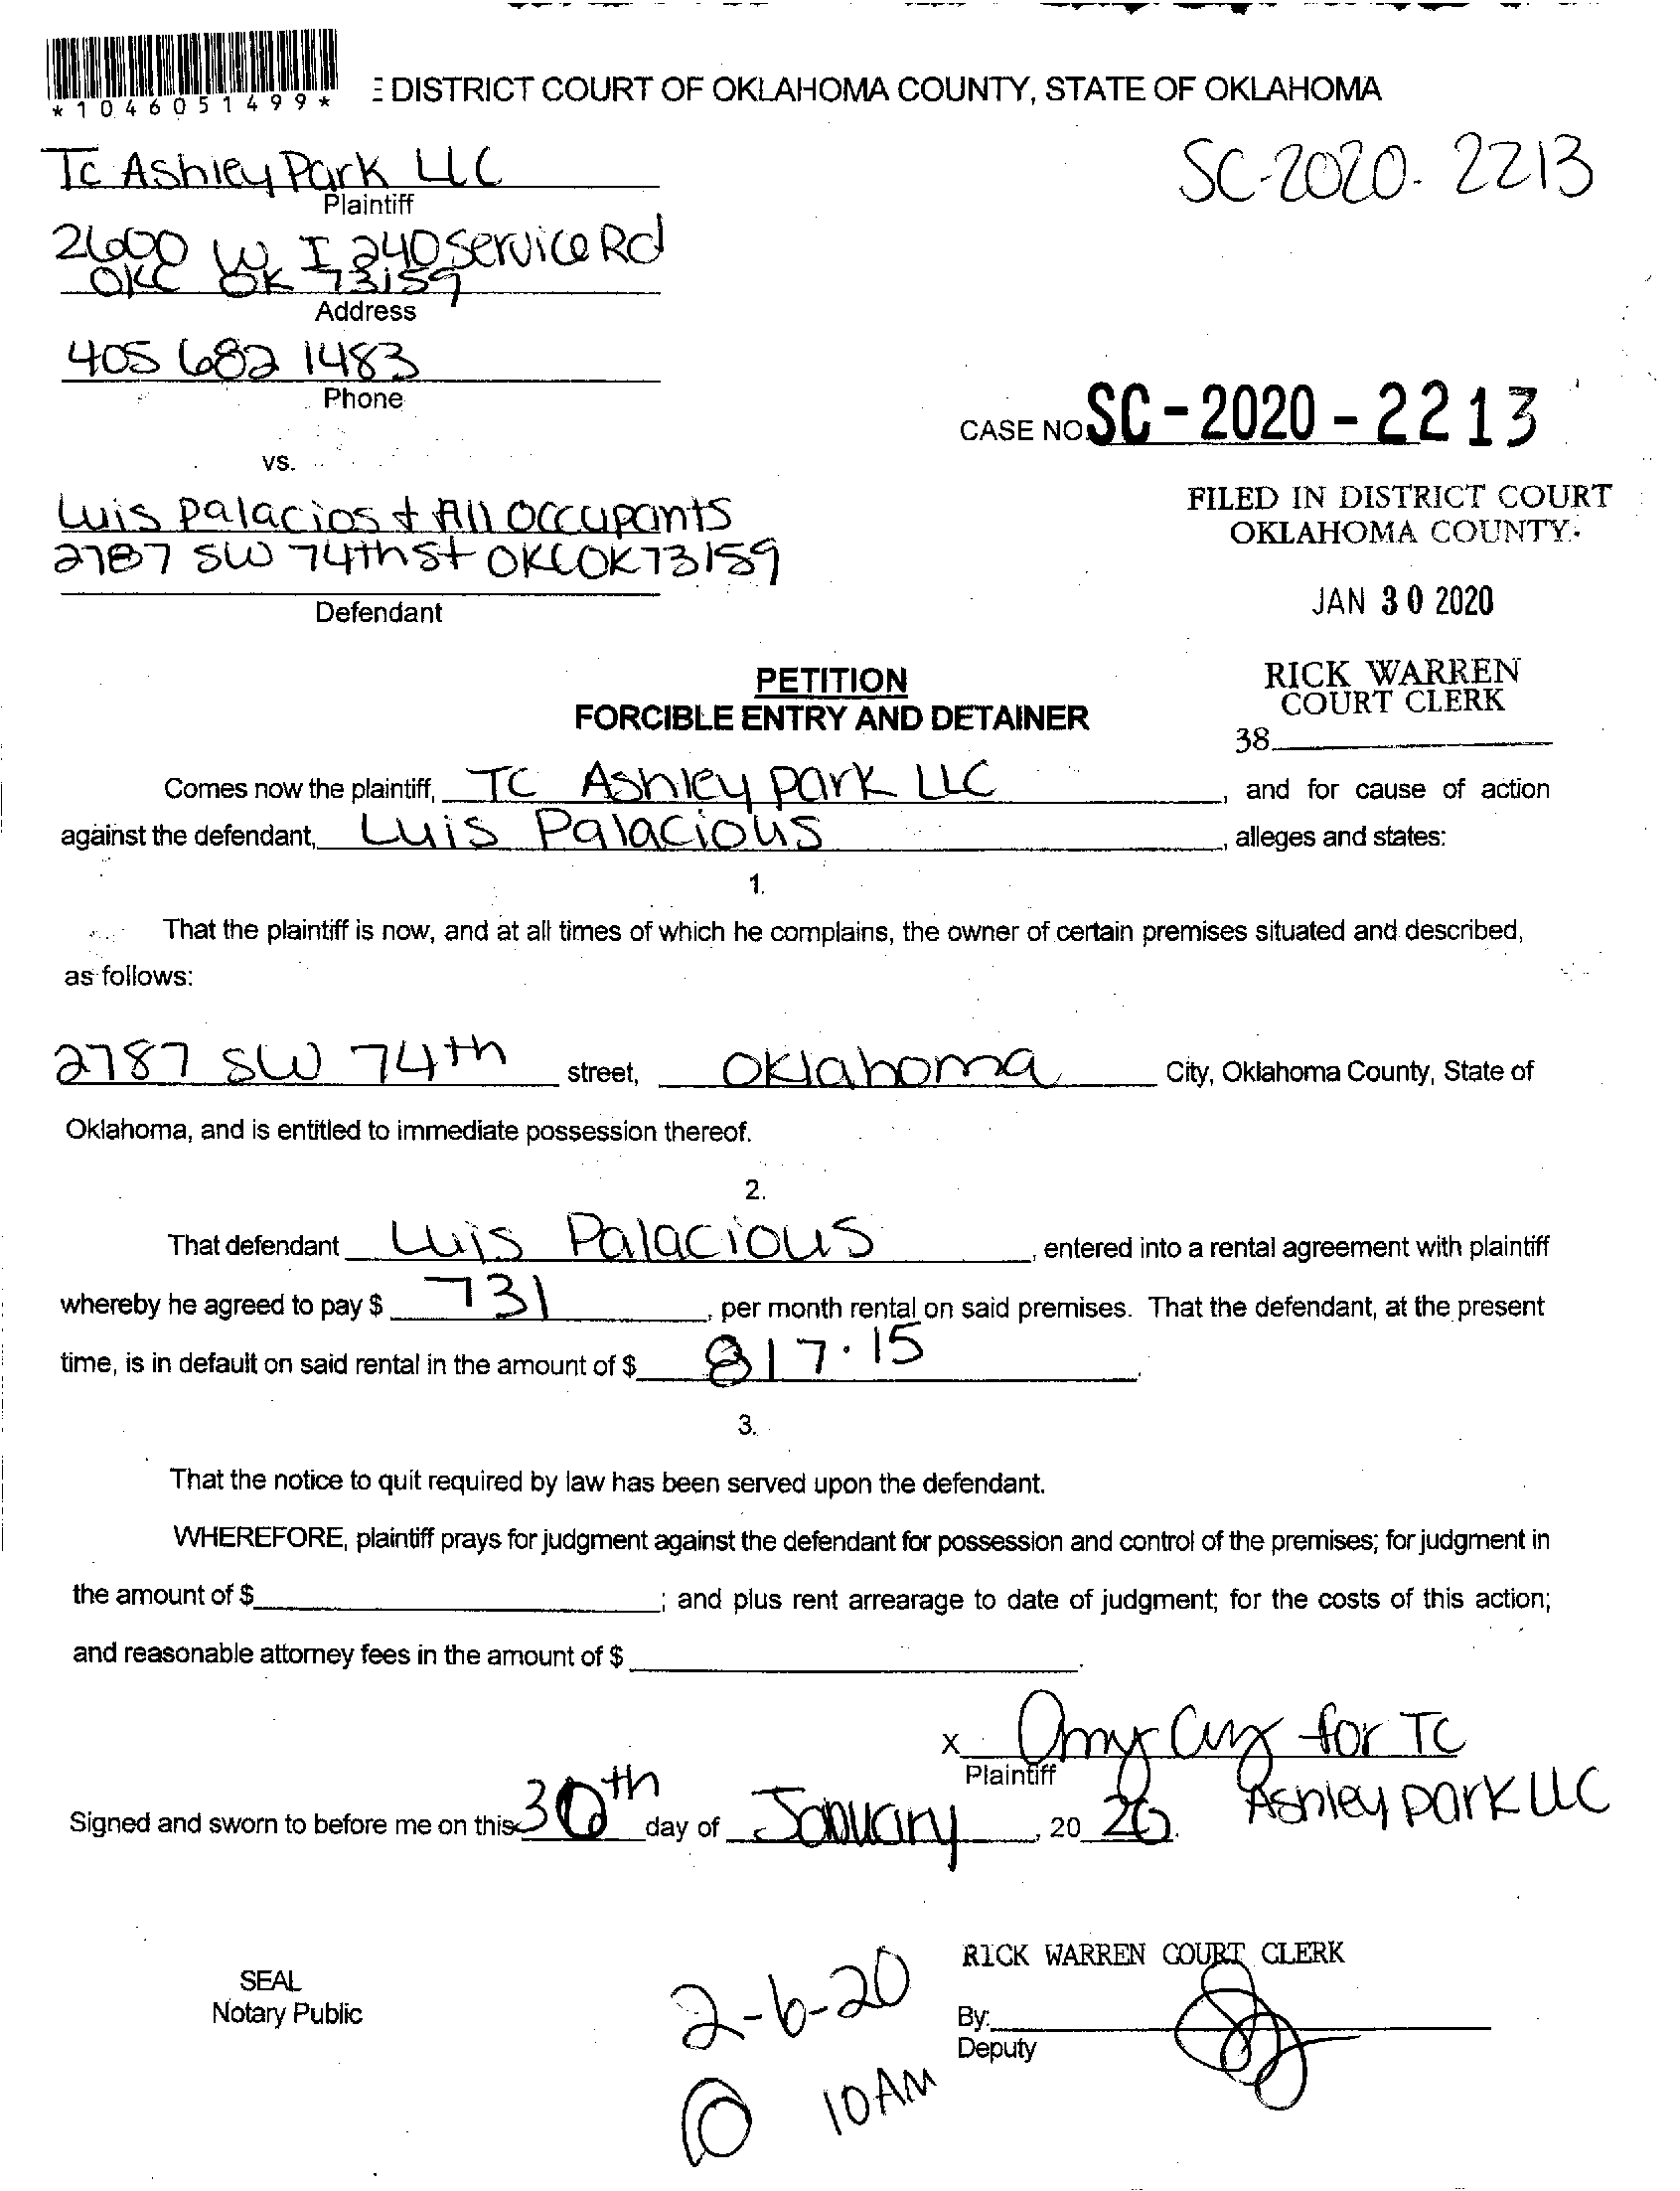 *1046051499*
E DISTRICT COURT OF OKLAHOMA COUNTY, STATE OF OKLAHOMA
TC Ashley Park LLC
Plaintiff
SC-2020-2213
2600 W I 240 Service Rd
OKC OK 73159
Address
405 682 1483
Phone
CASE NO. SC-2020-2213
vs.
FILED IN DISTRICT COURT
OKLAHOMA COUNTY
Luis Palacios + All Occupants
2787 SW 74th St OKC OK 73159
Defendant
JAN 30 2020
RICK WARREN
COURT CLERK
38
PETITION
FORCIBLE ENTRY AND DETAINER
Comes now the plaintiff, TC Ashley Park LLC, and for cause of action
against the defendant, Luis Palacious, alleges and states:
1.
That the plaintiff is now, and at all times of which he complains, the owner of certain premises situated and described,
as follows:
2787 SW 74th street, Oklahoma City, Oklahoma County, State of
Oklahoma, and is entitled to immediate possession thereof.
2.
That defendant Luis Palacious, entered into a rental agreement with plaintiff
whereby he agreed to pay $ 731, per month rental on said premises. That the defendant, at the present
time, is in default on said rental in the amount of $ 817.15.
3.
That the notice to quit required by law has been served upon the defendant.
WHEREFORE, plaintiff prays for judgment against the defendant for possession and control of the premises; for judgment in
the amount of $ ; and plus rent arrearage to date of judgment; for the costs of this action;
and reasonable attorney fees in the amount of $ .
X Amy Cruz for TC
Plaintiff
Ashley Park LLC
Signed and sworn to before me on this 30th day of January, 20 20.
SEAL
Notary Public
2-6-20
@ 10AM
RICK WARREN COURT CLERK
By:
Deputy